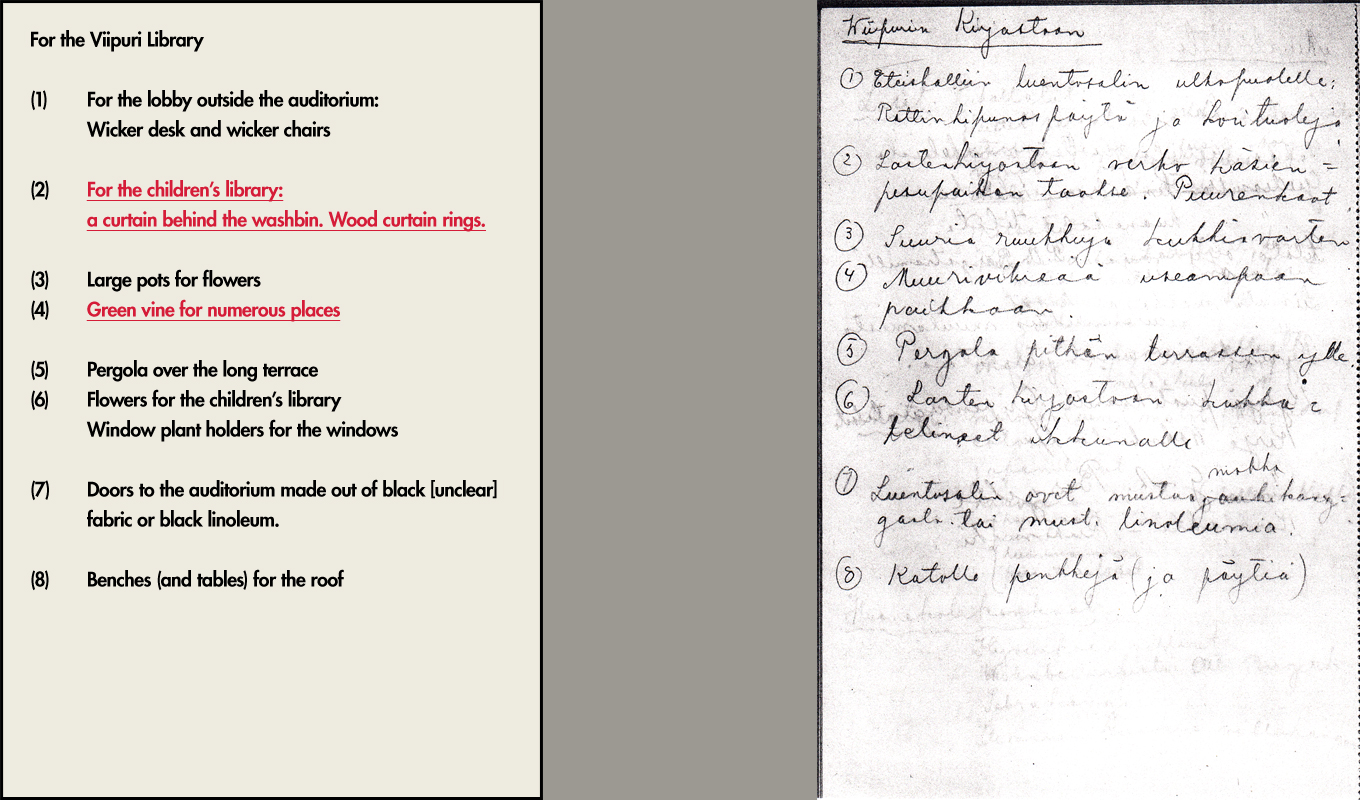 For the Viipuri Library
(1) For the lobby outside the auditorium:
Wicker desk and wicker chairs
(2) For the children's library:
a curtain behind the washbin. Wood curtain rings.
(3) Large pots for flowers
(4) Green vine for numerous places
(5) Pergola over the long terrace
(6) Flowers for the children's library
Window plant holders for the windows
(7) Doors to the auditorium made out of black [unclear]
fabric or black linoleum.
(8) Benches (and tables) for the roof
Wiipurin Kirjastoon
1 Eteishalliin luentosalin ulkopuolelle:
pöytä ja korituoleja
2 Lastenkirjastoon verho käsien=
pesupaikan taakse. Puurenkaat.
3 Suuria ruukkuja kukkia varten
4 Muurivihreää useampaan
paikkaan.
5 Pergola pitkän terrassin ylle.
6 Lasten kirjastoon kukka=
telineet ikkunalle
7 Luentosalin ovet mustaa
tai must. linoleumia.
8 Katolle penkkejä (ja pöytiä)